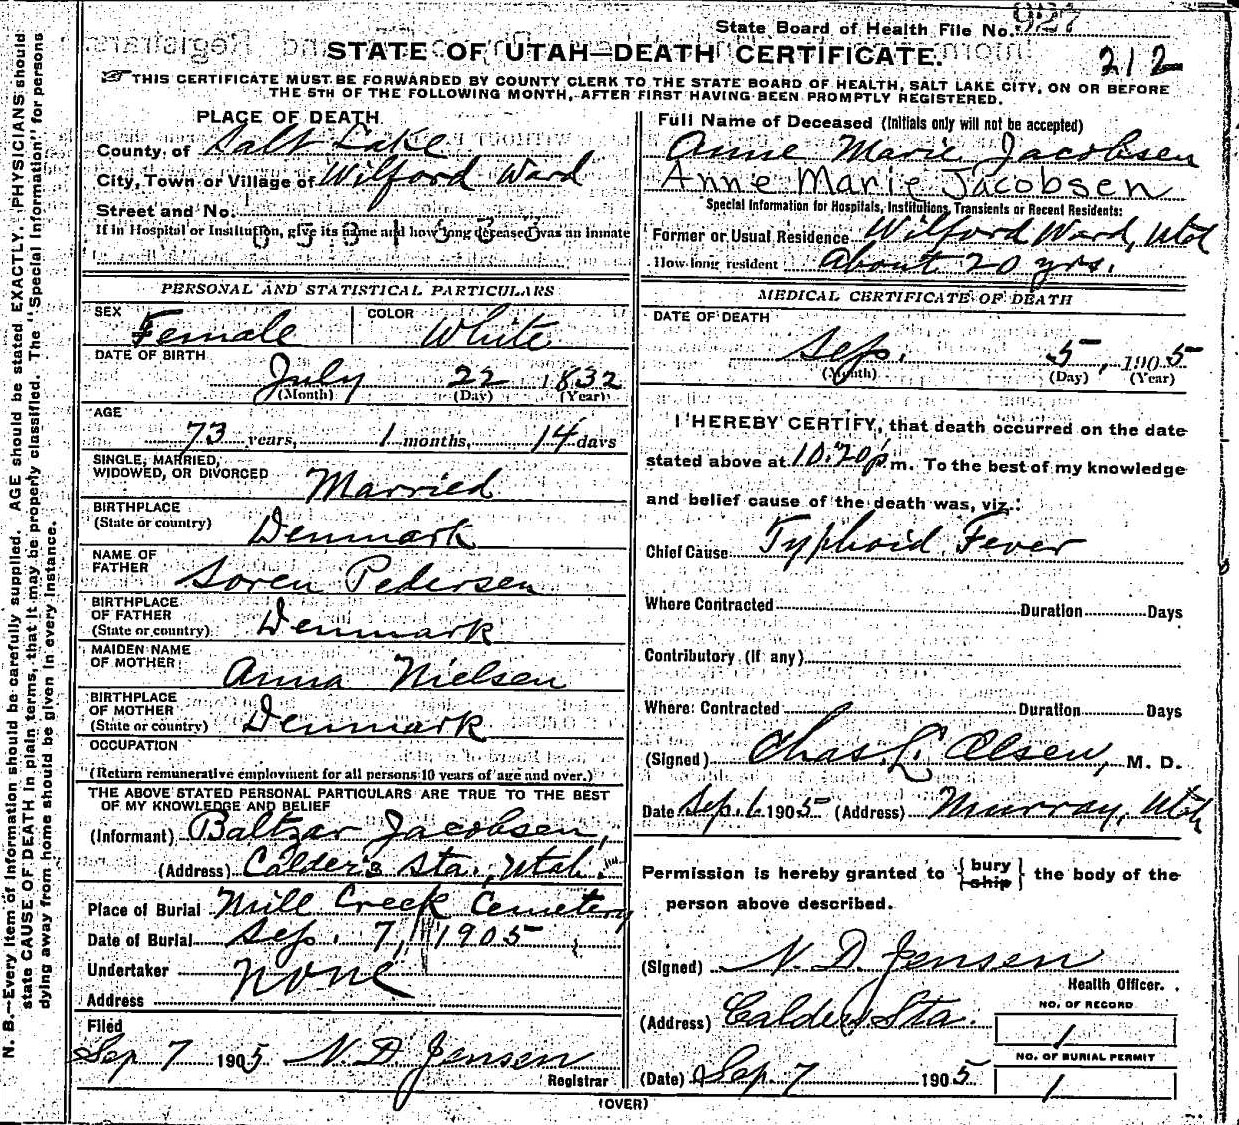 State Board of Health File No. 927
212
STATE OF UTAH—DEATH CERTIFICATE.
THIS CERTIFICATE MUST BE FORWARDED BY COUNTY CLERK TO THE STATE BOARD OF HEALTH, SALT LAKE CITY, ON OR BEFORE
THE 5TH OF THE FOLLOWING MONTH, AFTER FIRST HAVING BEEN PROMPTLY REGISTERED.
PLACE OF DEATH
County of Salt Lake
City, Town or Village of Wilford Ward
Street and No.
If in Hospital or Institution, give its name and how long deceased was an inmate
PERSONAL AND STATISTICAL PARTICULARS
SEX Female COLOR White
DATE OF BIRTH
July 22 1832
(Month) (Day) (Year)
AGE
73 years, 1 months, 14 days
SINGLE, MARRIED,
WIDOWED, OR DIVORCED Married
BIRTHPLACE
(State or country) Denmark
NAME OF
FATHER Soren Pedersen
BIRTHPLACE
OF FATHER
(State or country) Denmark
MAIDEN NAME
OF MOTHER Anna Nielsen
BIRTHPLACE
OF MOTHER
(State or country) Denmark
OCCUPATION
(Return remunerative employment for all persons 10 years of age and over.)
THE ABOVE STATED PERSONAL PARTICULARS ARE TRUE TO THE BEST
OF MY KNOWLEDGE AND BELIEF
(Informant) Baltzar Jacobsen,
(Address) Calder's Sta., Utah.
Place of Burial Mill Creek Cemetery
Date of Burial Sep. 7, 1905
Undertaker None
Address
Filed
Sep 7 1905 N. D. Jensen
Registrar
Full Name of Deceased (Initials only will not be accepted)
Anne Marie Jacobsen
Anne Marie Jacobsen
Special Information for Hospitals, Institutions, Transients or Recent Residents:
Former or Usual Residence Wilford Ward, Utah
How long resident about 20 yrs.
MEDICAL CERTIFICATE OF DEATH
DATE OF DEATH
Sep. 5, 1905
(Month) (Day) (Year)
I HEREBY CERTIFY, that death occurred on the date
stated above at 10:20 p m. To the best of my knowledge
and belief cause of the death was, viz.:
Chief Cause Typhoid Fever
Where Contracted Duration Days
Contributory (If any)
Where Contracted Duration Days
(Signed) Chas. L. Olsen, M. D.
Date Sep. 6 1905 (Address) Murray, Utah
Permission is hereby granted to {bury ship} the body of the
person above described.
(Signed) N. D. Jensen
Health Officer.
(Address) Calders Sta.
NO. OF RECORD
1
NO. OF BURIAL PERMIT
1
(Date) Sep. 7 1905
(OVER)
N. B.—Every item of information should be carefully supplied. AGE should be stated EXACTLY. PHYSICIANS should
state CAUSE OF DEATH in plain terms, that it may be properly classified. The "Special Information" for persons
dying away from home should be given in every instance.